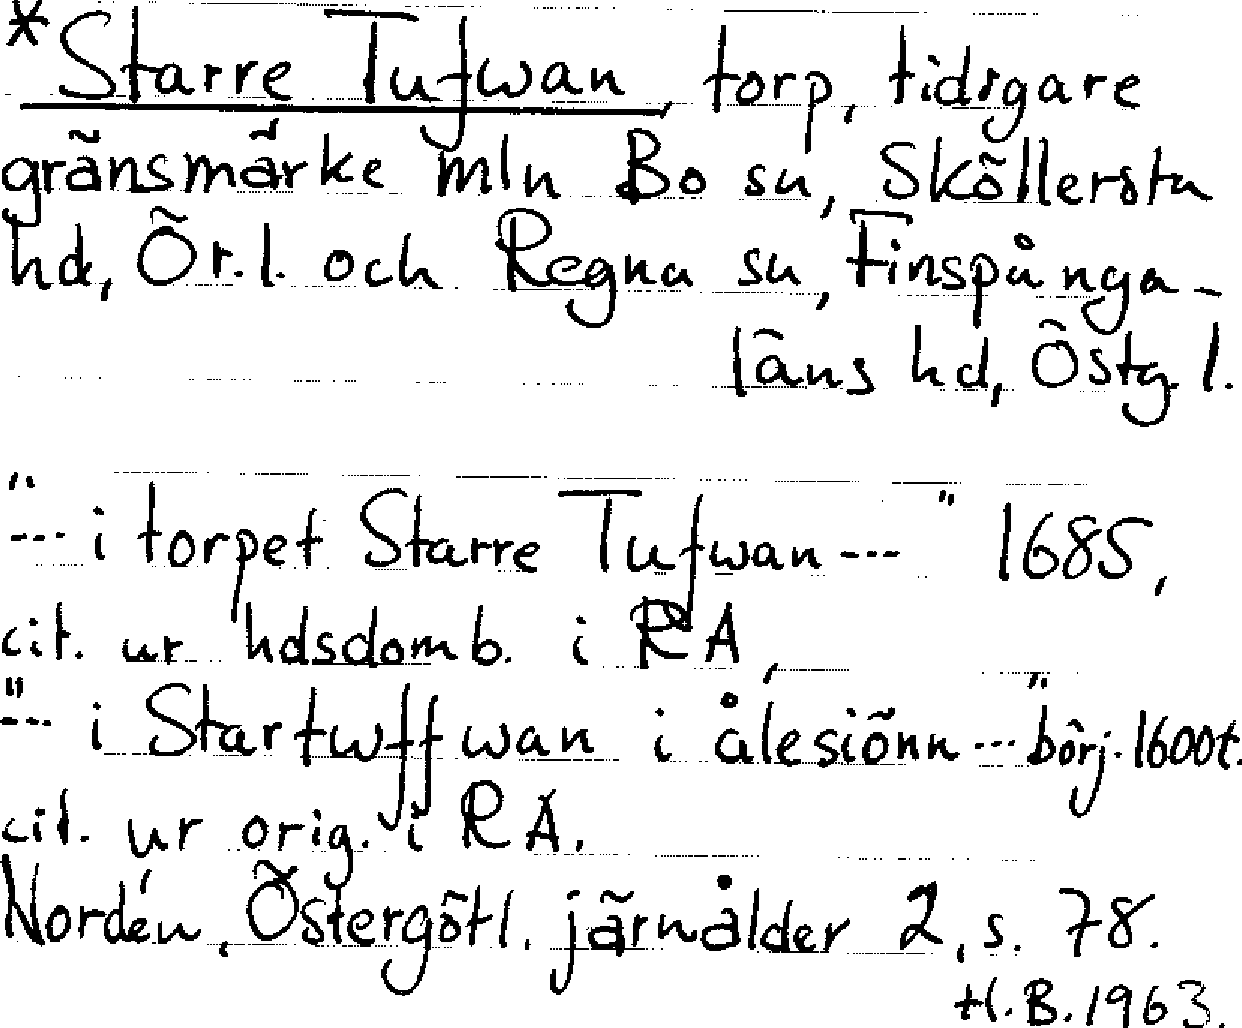 *Starre Tufwan, torp, tidigare
gränsmärke mln Bo sn, Sköllersta
hd, Ör. l. och Regna sn, Finspånga-
läns hd, Östg. l.
"--- i torpet Starre Tufwan---" 1685,
cit. ur hdsdomb. i RA,
"--- i Startwffwan i ålesiönn ---" börj. 1600t.
cit. ur orig. i RA.
Nordén, Östergötl. järnålder 2, s. 78.
H.B. 1963.